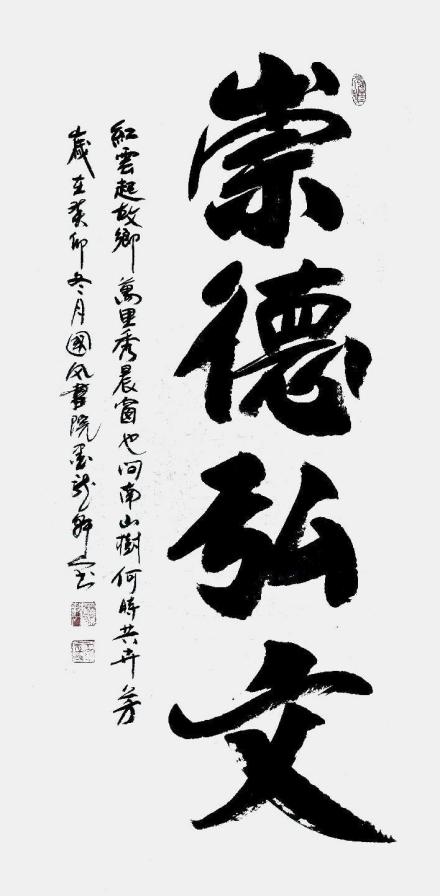 崇德弘文
紅雲起故鄉萬里秀晨窗也問南山樹何時共卉芳
歲在癸卯冬月國風書院墨龍軒